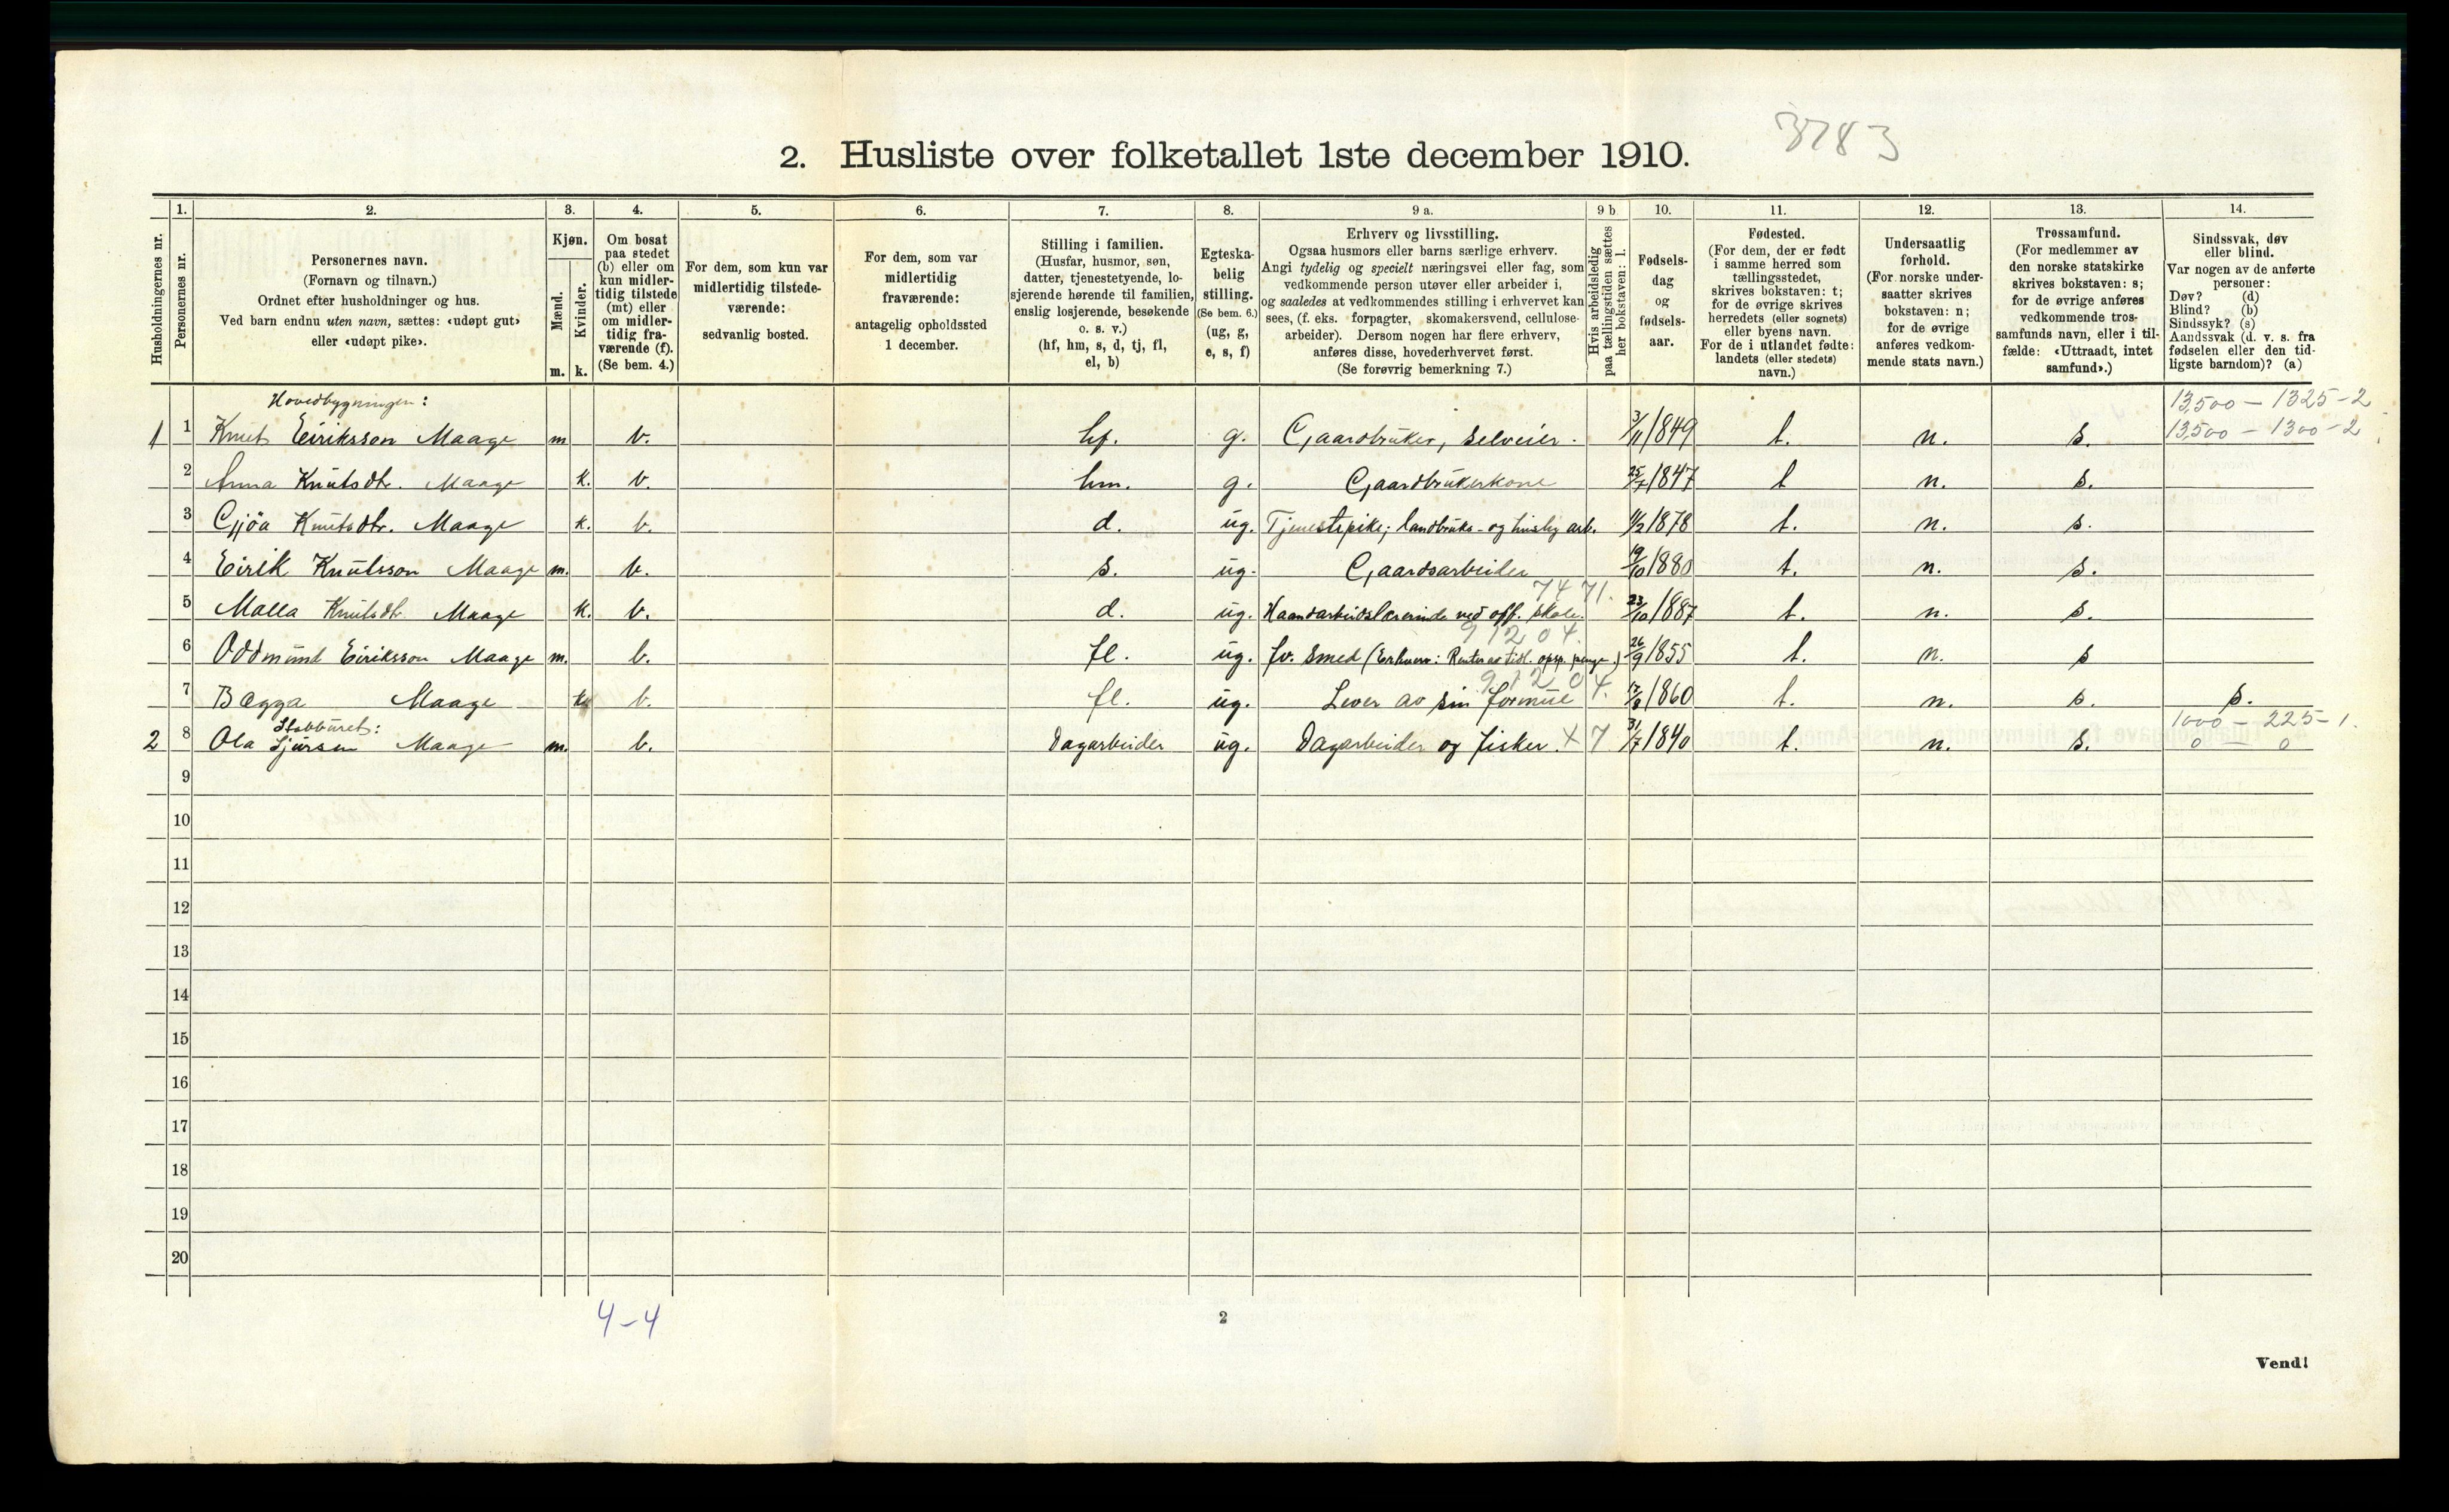 3783
2. Husliste over folketallet 1ste december 1910.
Husholdningernes nr.
1.
Personernes nr.
2.
Personernes navn.
(Fornavn og tilnavn.)
Ordnet efter husholdninger og hus.
Ved barn endnu uten navn, sættes: «udøpt gut»
eller «udøpt pike».
3.
Kjøn.
Mænd.
m.
Kvinder.
k.
4.
Om bosat
paa stedet
(b) eller om
kun midler-
tidig tilstede
(mt) eller
om midler-
tidig fra-
værende (f).
(Se bem. 4.)
5.
For dem, som kun var
midlertidig tilstede-
værende:
sedvanlig bosted.
6.
For dem, som var
midlertidig
fraværende:
antagelig opholdssted
1 december.
7.
Stilling i familien.
(Husfar, husmor, søn,
datter, tjenestetyende, lo-
sjerende hørende til familien,
enslig losjerende, besøkende
o. s. v.)
(hf, hm, s, d, tj, fl,
el, b)
8.
Egteska-
belig
stilling.
(Se bem. 6.)
(ug, g,
e, s, f)
9 a.
Erhverv og livsstilling.
Ogsaa husmors eller barns særlige erhverv.
Angi tydelig og specielt næringsvei eller fag, som
vedkommende person utøver eller arbeider i,
og saaledes at vedkommendes stilling i erhvervet kan
sees, (f. eks. forpagter, skomakersvend, cellulose-
arbeider). Dersom nogen har flere erhverv,
anføres disse, hovederhvervet først.
(Se forøvrig bemerkning 7.)
9 b
Hvis arbeidsledig
paa tællingstiden sættes
her bokstaven: l.
10.
Fødsels-
dag
og
fødsels-
aar.
11.
Fødested.
(For dem, der er født
i samme herred som
tællingsstedet,
skrives bokstaven: t;
for de øvrige skrives
herredets (eller sognets)
eller byens navn.
For de i utlandet fødte:
landets (eller stedets)
navn.)
12.
Undersaatlig
forhold.
(For norske under-
saatter skrives
bokstaven: n;
for de øvrige
anføres vedkom-
mende stats navn.)
13.
Trossamfund.
(For medlemmer av
den norske statskirke
skrives bokstaven: s;
for de øvrige anføres
vedkommende tros-
samfunds navn, eller i til-
fælde: «Uttraadt, intet
samfund».)
14.
Sindssvak, døv
eller blind.
Var nogen av de anførte
personer:
Døv? (d)
Blind? (b)
Sindssyk? (s)
Aandssvak (d. v. s. fra
fødselen eller den tid-
ligste barndom)? (a)
Hovedbygningen: 13,500 - 1325-2
1 1 Knut Eiriksson Maage m b. hf. g. Gaardbruker, selveier. 3/11 1849 t. n. s. 13,500 - 1300-2
2 Anna Knutsdtr. Maage k. b. hm. g. Gaardbrukerkone 25/7 1847 t n. s.
3 Gjöa Knutsdtr. Maage k. b. d. ug. Tjenestepike; landbruks- og husly arb. 1878 t. n. s.
4 Eirik Knutsson Maage m. b. s. ug. Gaardsarbeider 19/10 1880 t. n. s.
7471.
5 Malla Knutsdtr. Maage k. b. d. ug. Haandarbeidslærerinde ved off. skole. 23/10 1887 t. n. s.
91204.
6 Oddmund Eiriksson Maage m. b. fl. ug. fv. Smed (Erhverv: Renter av tidl. opsp. penge.) 26/9 1855 t. n. s
91204.
7 Bægga Maage k b. fl. ug. Lever av sin formue 1860 t. n. s. s.
Stabburet: 1000 - 225-1.
2 8 Ola Sjursen Maage m. b. Dagarbeider ug. Dagarbeider og fisker. X 7 31/7 1840 t. n. s. 0 - 0
9
10
11
12
13
14
15
16
17
18
19
20
4-4
2
Vend!